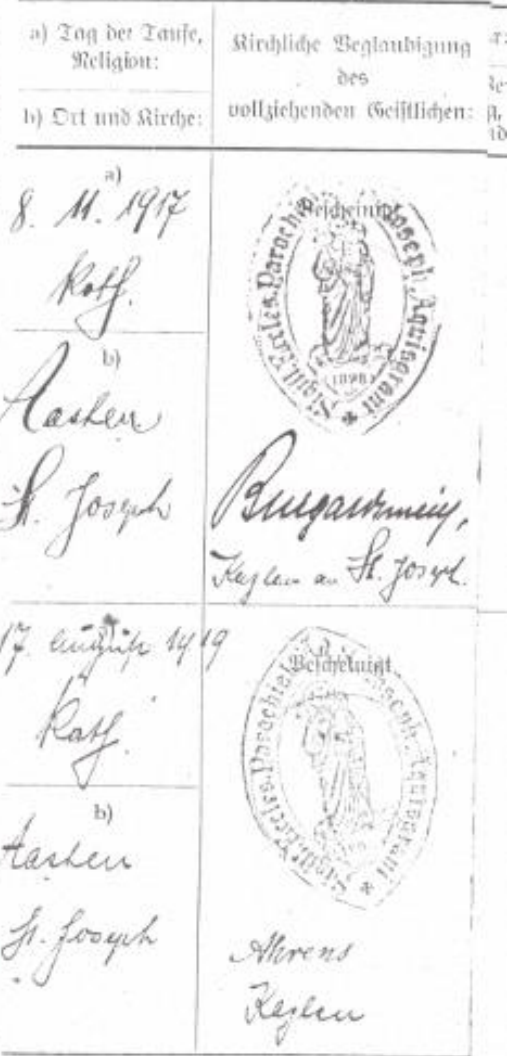 a) Tag der Taufe,
Religion:
b) Ort und Kirche:
Kirchliche Beglaubigung
des
vollziehenden Geistlichen:
a)
8. 11. 1917
Kath.
b)
Aachen
St. Joseph
Bescheinigt
Sigill. Eccles. Parochial. St. Joseph. Aquisgrani
1898
Kaplan an St. Joseph.
17. August 1919
Kath.
b)
Aachen
St. Joseph
Bescheinigt
Sigill. Eccles. Parochial. St. Joseph. Aquisgrani
Ahrens
Kaplan